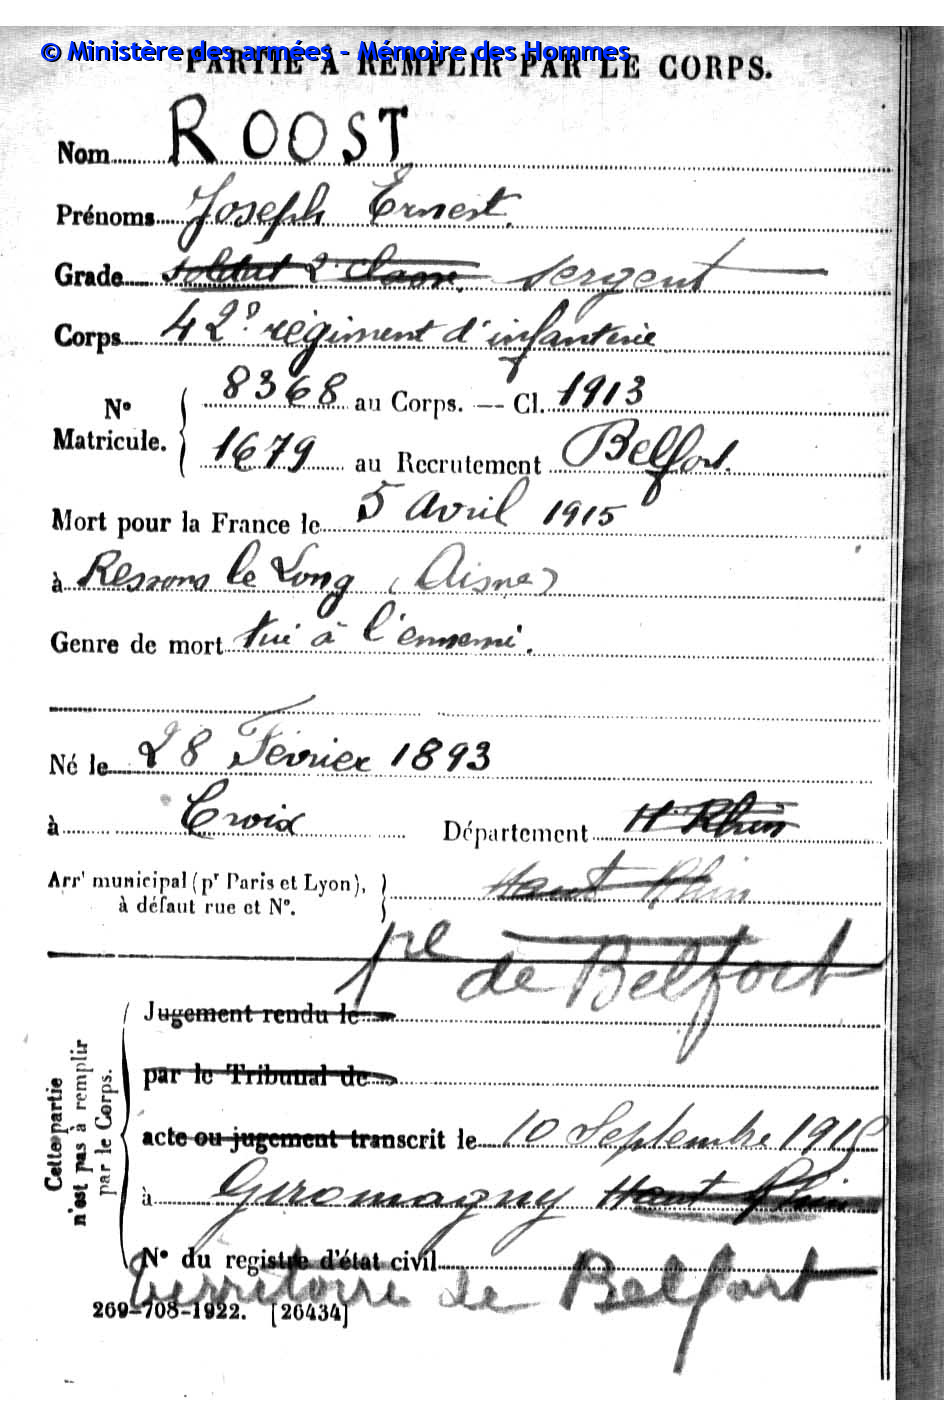 © Ministère des armées - Mémoire des Hommes
PARTIE À REMPLIR PAR LE CORPS.
Nom ROOST
Prénoms Joseph Ernest
Grade soldat 2e classe sergent
Corps 42e régiment d'infanterie
N° Matricule. 8368 au Corps. — Cl. 1913
1679 au Recrutement Belfort.
Mort pour la France le 5 avril 1915
à Ressons le Long (Aisne)
Genre de mort tué à l'ennemi.
Né le 28 Février 1893
à Croix Département H. Rhin
Arrt municipal (pr Paris et Lyon), à défaut rue et N°. Haut Rhin
de Belfort
Cette partie n'est pas à remplir par le Corps.
Jugement rendu le
par le Tribunal de
acte ou jugement transcrit le 10 Septembre 1915
à Giromagny Haut Rhin
N° du registre d'état civil
Territoire de Belfort
269-708-1922. [26434]